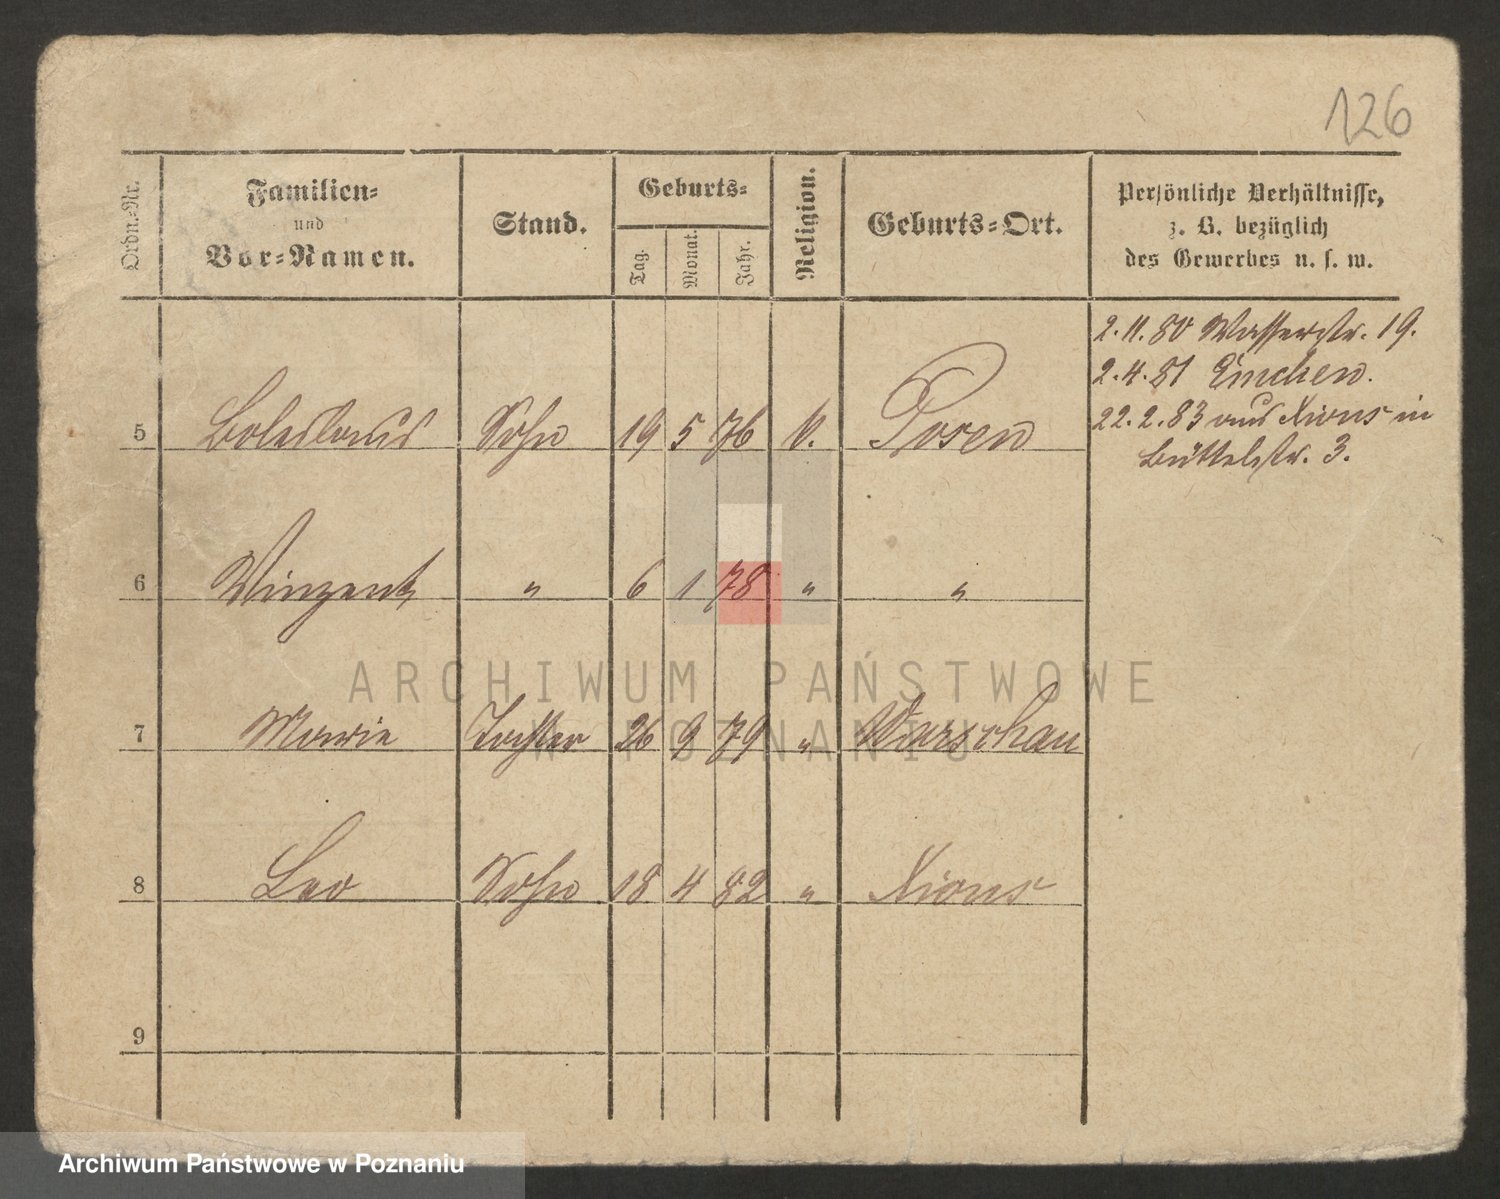 126
Ordn.-Nr. Familien- und Vor-Namen. Stand. Geburts- Tag. Monat. Jahr. Religion. Geburts-Ort. Persönliche Verhältnisse, z. B. bezüglich des Gewerbes u. s. w.
2.11.80 Wasserstr. 19.
2.4.81
22.2.83 aus Xions in
Büttelstr. 3.
5 Boleslaus Sohn 19 5 76 k. Posen
6 Vinzent " 6 1 78 " "
7 Marie Tochter 26 9 79 " Warschau
8 Leo Sohn 18 4 82 " Xions
9
ARCHIWUM PAŃSTWOWE
W POZNANIU
Archiwum Państwowe w Poznaniu